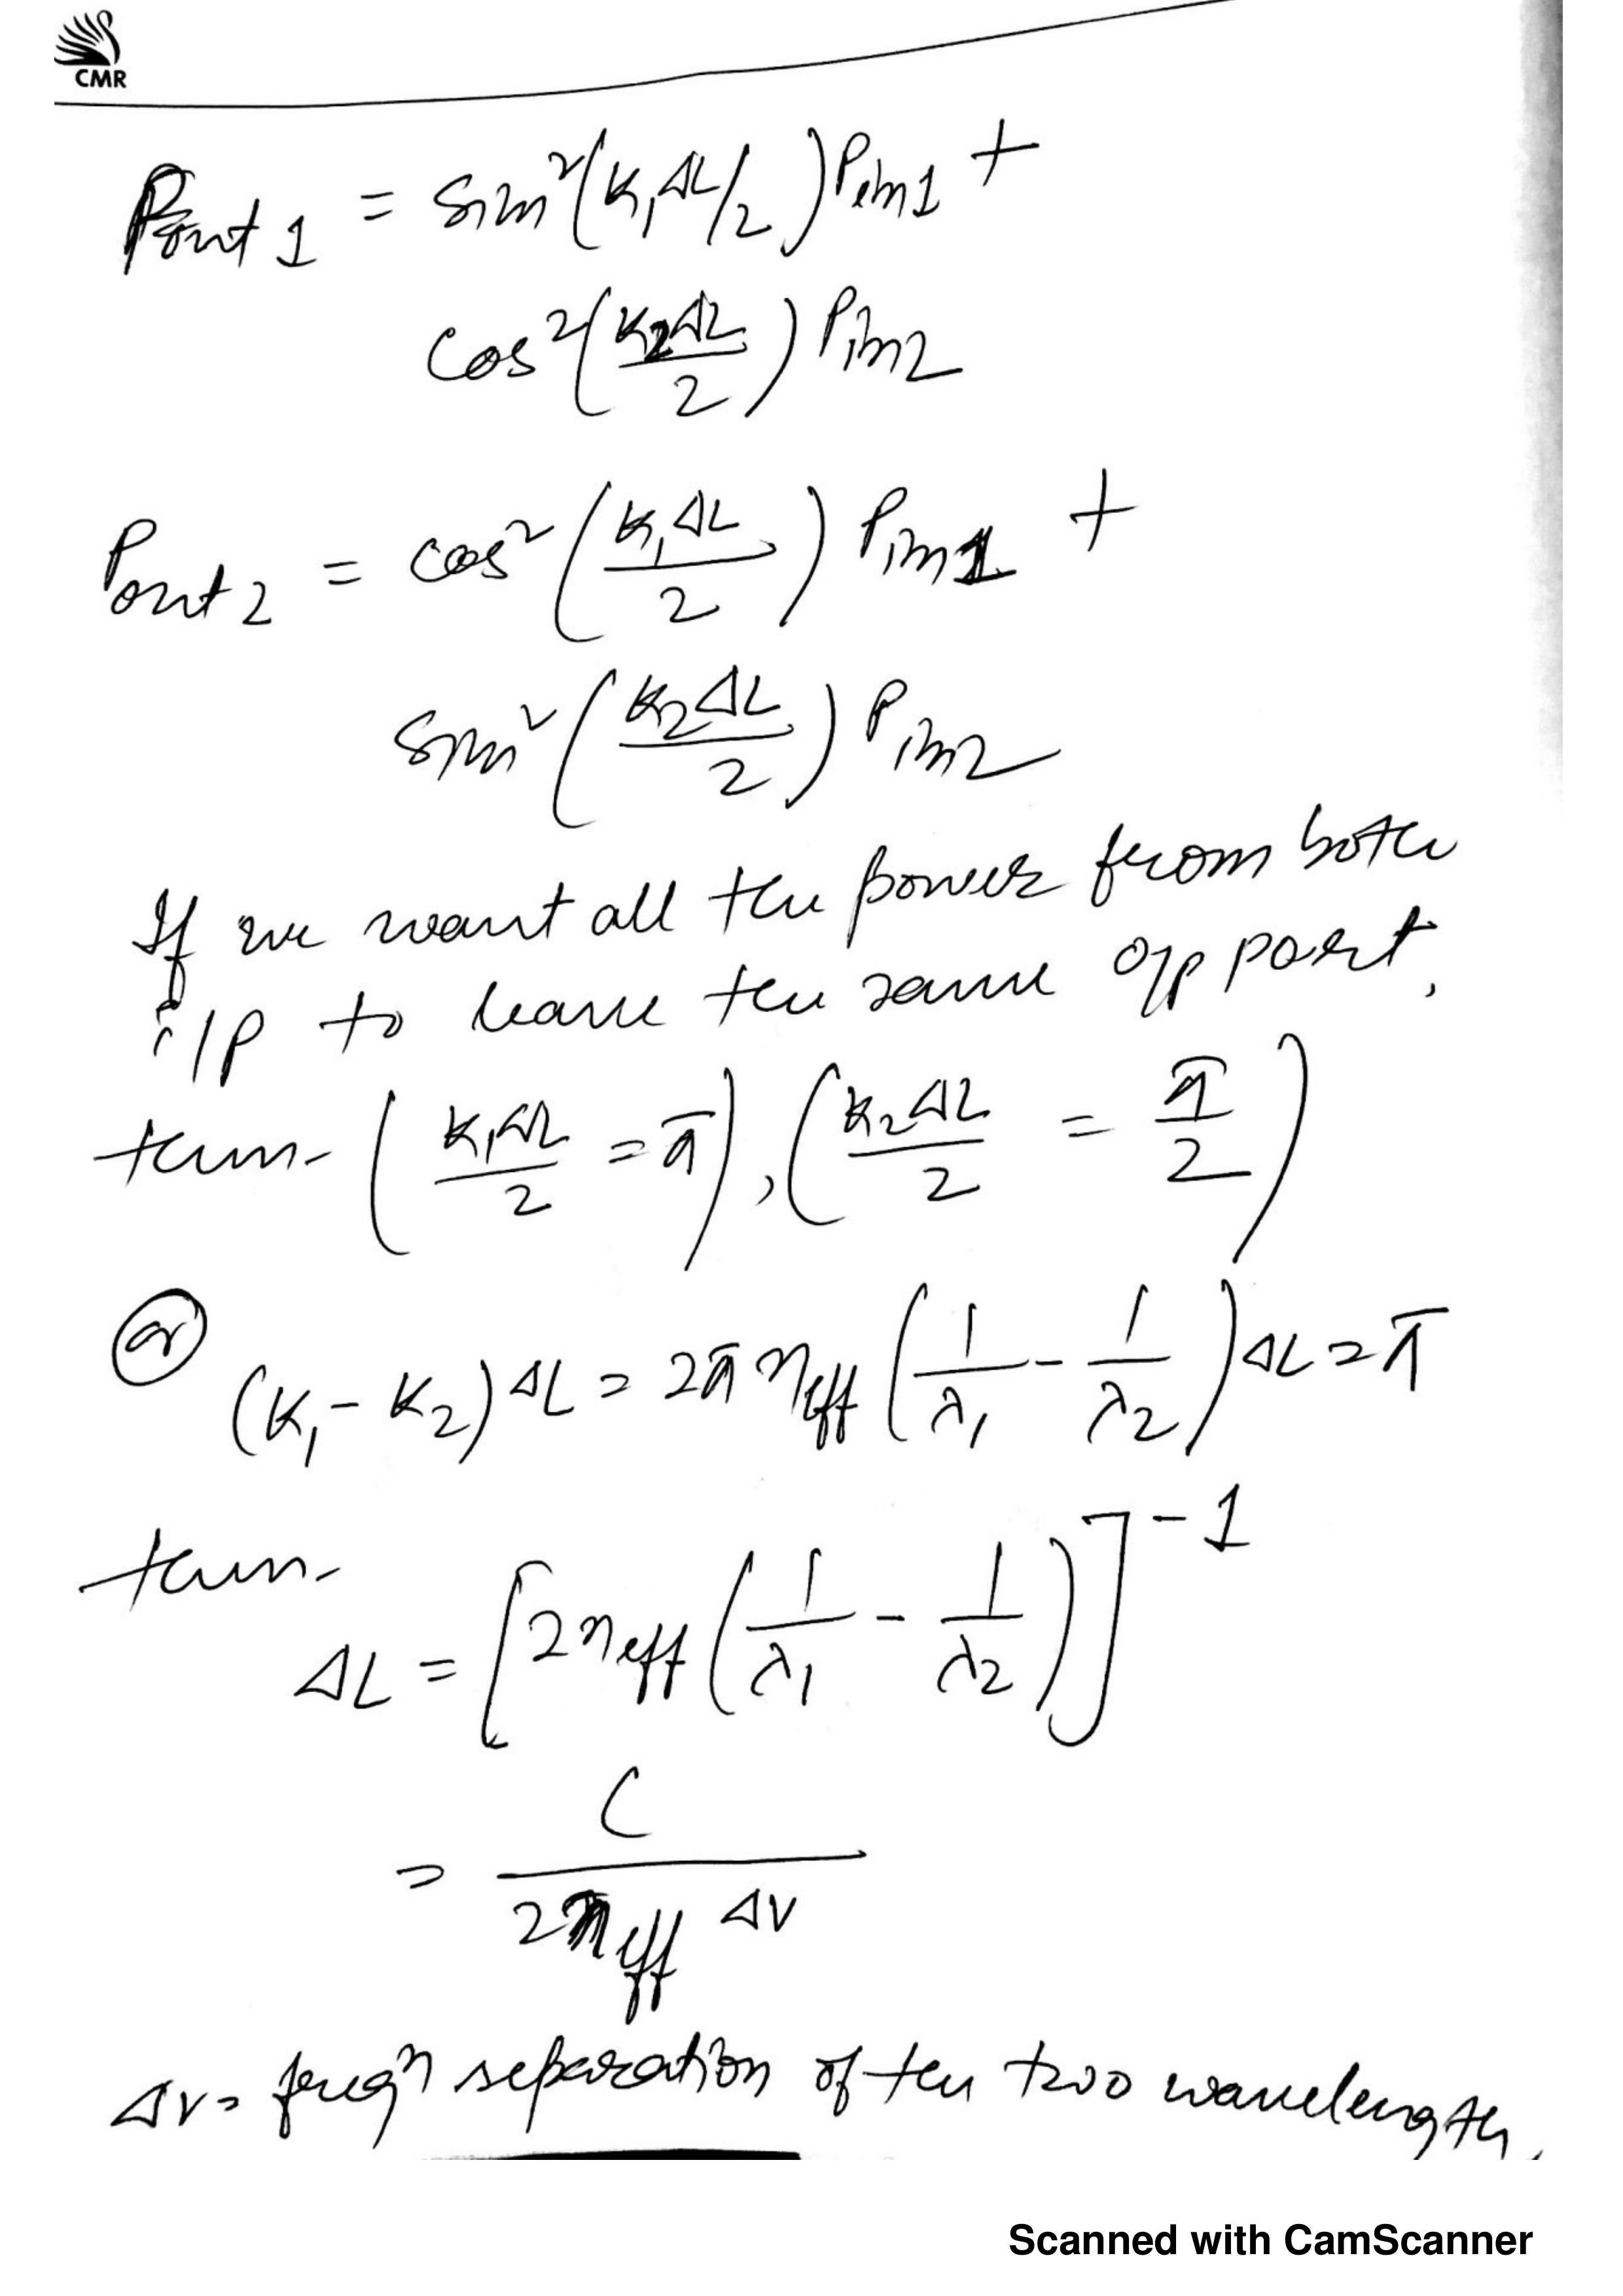 CMR
Pout1 = sin²(k₁ΔL/2)Pin1 +
cos²(k₂ΔL/2) Pin2
Pout2 = cos²(k₁ΔL/2) Pin1 +
sin²(k₂ΔL/2) Pin2
If we want all the power from both
i/p to leave the same o/p port,
then (k₁ΔL/2 = π), (k₂ΔL/2 = π/2)
or
(k₁ - k₂)ΔL = 2π neff (1/λ₁ - 1/λ₂)ΔL = π
then
ΔL = [2neff(1/λ₁ - 1/λ₂)]⁻¹
= C/2neff Δν
Δν = freqⁿ separation of the two wavelength.
Scanned with CamScanner